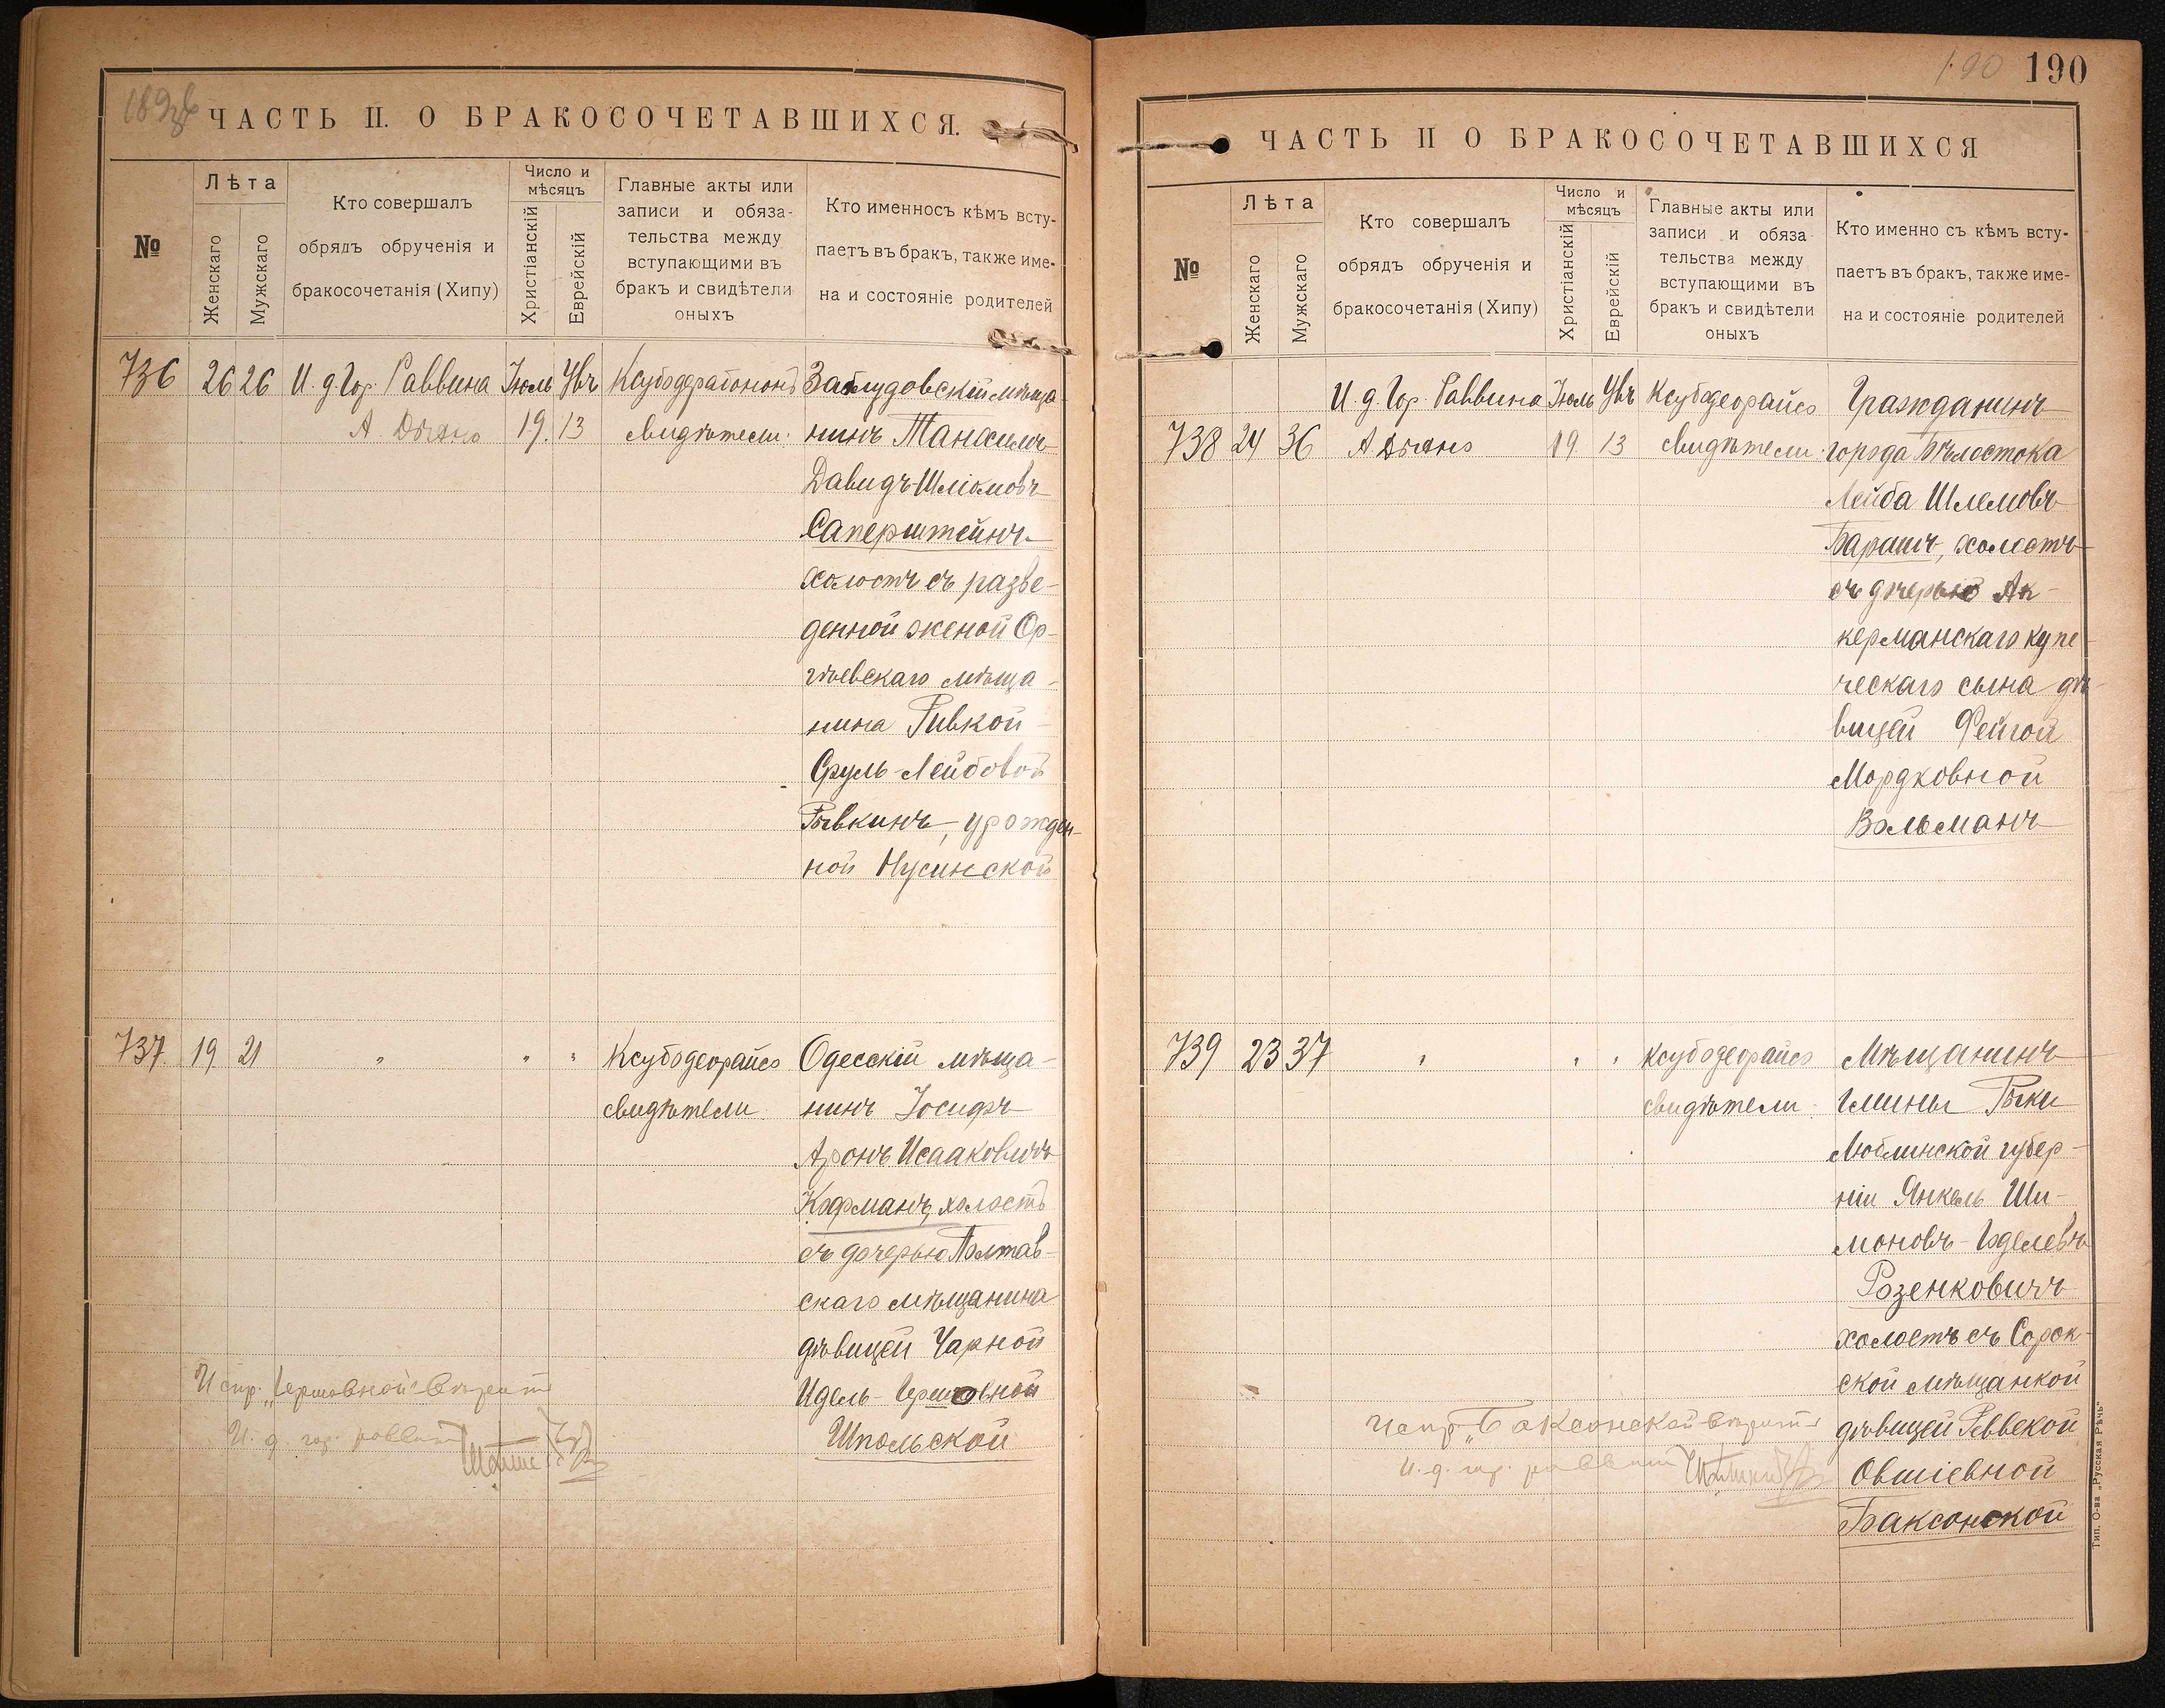 ЧАСТЬ II. О БРАКОСОЧЕТАВШИХСЯ.
№
Лѣта
Женскаго
Мужскаго
Кто совершалъ
обрядъ обрученія и
бракосочетанія (Хипу)
Число и
мѣсяцъ
Христіанскій
Еврейскій
Главные акты или
записи и обяза-
тельства между
вступающими въ
бракъ и свидѣтели
оныхъ
Кто именносъ кѣмъ всту-
паетъ въ бракъ, также име-
на и состояніе родителей
736 26 26 И. д. Гор. Раввина Іюль
А. 19. 13 свидѣтели.
Заблудовскій мѣща-
нинъ Танхилъ-
Давидъ-Шліомовъ
Саперштейнъ
холостъ съ разве-
денной женой Ор-
гѣевскаго мѣща-
нина Ривкой
Сруль-Лейбовой
Рывкинъ, урожден-
ной Нусинской
737. 19 21 " " " свидѣтели
Одесскій мѣща-
нинъ Іосифъ
Аронъ Исааковичъ
Кофманъ, холостъ
съ дочерью Полтав-
скаго мѣщанина
дѣвицей Чарной
Идель-Гершовной
Шпольской
Испр. „Гершовной" вѣрить
И. д. гор. раввина
190 190
ЧАСТЬ II О БРАКОСОЧЕТАВШИХСЯ
№
Лѣта
Женскаго
Мужскаго
Кто совершалъ
обрядъ обрученія и
бракосочетанія (Хипу)
Число и
мѣсяцъ
Христіанскій
Еврейскій
Главные акты или
записи и обяза
тельства между
вступающими въ
бракъ и свидѣтели
оныхъ
Кто именно съ кѣмъ всту-
паетъ въ бракъ, также име-
на и состояніе родителей
И. д. Гор. Раввина Іюль
738 24 36 А 19 13 свидѣтели.
Гражданинъ
города Бѣлостока
Лейба Шлемовъ
Барашъ, холостъ
съ дочерью Ак-
керманскаго купе-
ческаго сына дѣ-
вицей Фейгой
Мордковной
Вольманъ
739 23 37 " " " свидѣтели.
Мѣщанинъ
гмины Рыки
Люблинской губер-
ніи Янкель Ши-
моновъ-Іоделевъ
Розенковичъ
холостъ съ Сорок-
ской мѣщанкой
дѣвицей Реввекой
Овшіевной
Баксонской
Испр. „Баксонской" вѣрить
И. д. гор. раввина
Тип. О-ва „Русская Рѣчь"